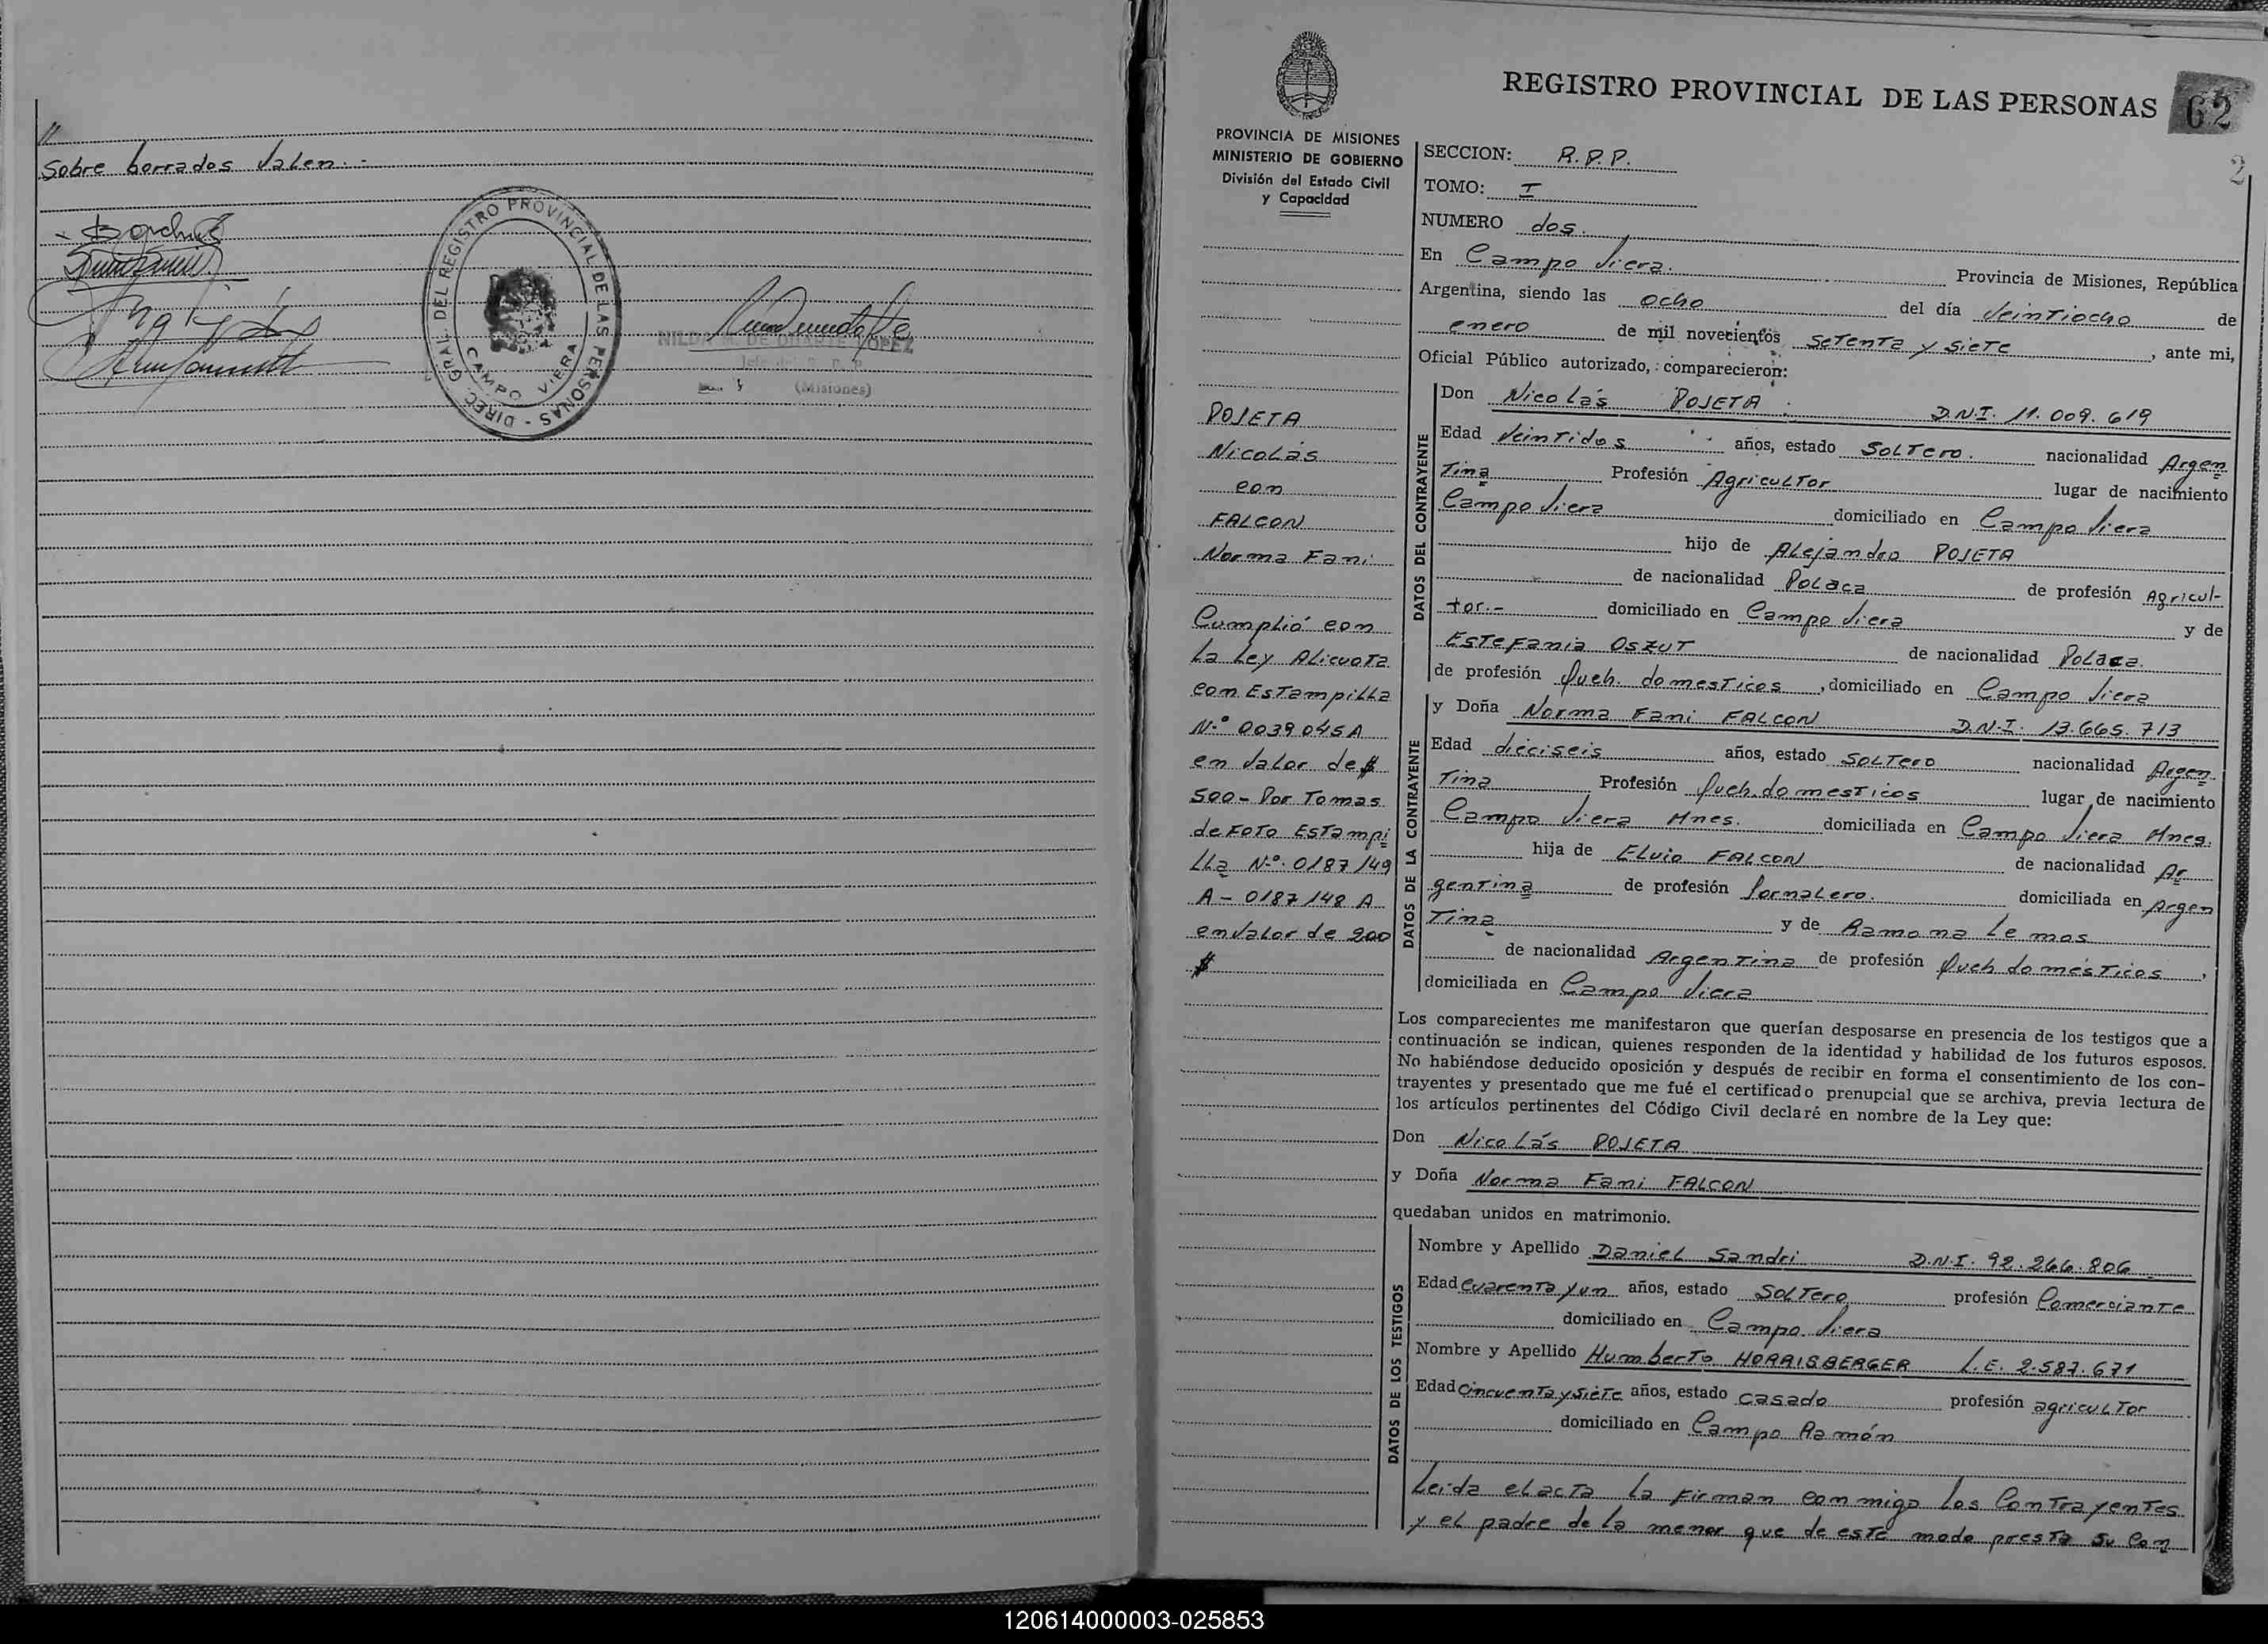 //
Sobre borrados Valen.-
DIREC. GRAL. DEL REGISTRO PROVINCIAL DE LAS PERSONAS -
CAMPO VIERA
NILDA M. DE DUARTE LOPEZ
Jefe del R. P. P.
(Misiones)
REGISTRO PROVINCIAL DE LAS PERSONAS
62
2
PROVINCIA DE MISIONES
MINISTERIO DE GOBIERNO
División del Estado Civil
y Capacidad
POJETA
Nicolás
con
FALCON
Norma Fani
Cumplió con
La Ley Alicuota
con Estampilla
N.º 0039045A
en valor de $
500- Por Tomas
de Foto Estampi
lla N.º 0187149
A - 0187148 A
en valor de 200
$
SECCION: R.P.P.
TOMO: I
NUMERO dos.
En Campo Viera. Provincia de Misiones, República
Argentina, siendo las ocho del día Veintiocho de
enero de mil novecientos setenta y siete, ante mi,
Oficial Público autorizado, comparecieron:
DATOS DEL CONTRAYENTE
Don Nicolás POJETA D.N.I. 11.009.619
Edad Veintidos años, estado Soltero. nacionalidad Argen
tina Profesión Agricultor lugar de nacimiento
Campo Viera domiciliado en Campo Viera
hijo de Alejandro POJETA
de nacionalidad Polaca de profesión Agricul-
tor.- domiciliado en Campo Viera y de
Estefania OSZUT de nacionalidad Polaca.
de profesión Queh. domesticos, domiciliado en Campo Viera
DATOS DE LA CONTRAYENTE
y Doña Norma Fani FALCON D.N.I. 13.665.713
Edad dieciseis años, estado Soltero nacionalidad Argen
tina Profesión Queh. domesticos lugar de nacimiento
Campo Viera Mnes. domiciliada en Campo Viera Mnes.
hija de Elvio FALCON de nacionalidad Ar
gentina de profesión Jornalero. domiciliada en Argen
tina y de Ramona Lemos
de nacionalidad Argentina de profesión Queh domésticos,
domiciliada en Campo Viera
Los comparecientes me manifestaron que querían desposarse en presencia de los testigos que a
continuación se indican, quienes responden de la identidad y habilidad de los futuros esposos.
No habiéndose deducido oposición y después de recibir en forma el consentimiento de los con-
trayentes y presentado que me fué el certificado prenupcial que se archiva, previa lectura de
los artículos pertinentes del Código Civil declaré en nombre de la Ley que:
Don Nicolás POJETA
y Doña Norma Fani FALCON
quedaban unidos en matrimonio.
DATOS DE LOS TESTIGOS
Nombre y Apellido Daniel Sandri D.N.I. 92.266.806
Edad cuarenta y un años, estado Soltero profesión Comerciante
domiciliado en Campo Viera
Nombre y Apellido Humberto HORRISBERGER L.E. 2.587.671
Edad cincuenta y siete años, estado casado profesión agricultor
domiciliado en Campo Ramón
Leida el acta la firman conmigo los Contrayentes
y el padre de la menor que de este modo presta su con
120614000003-025853